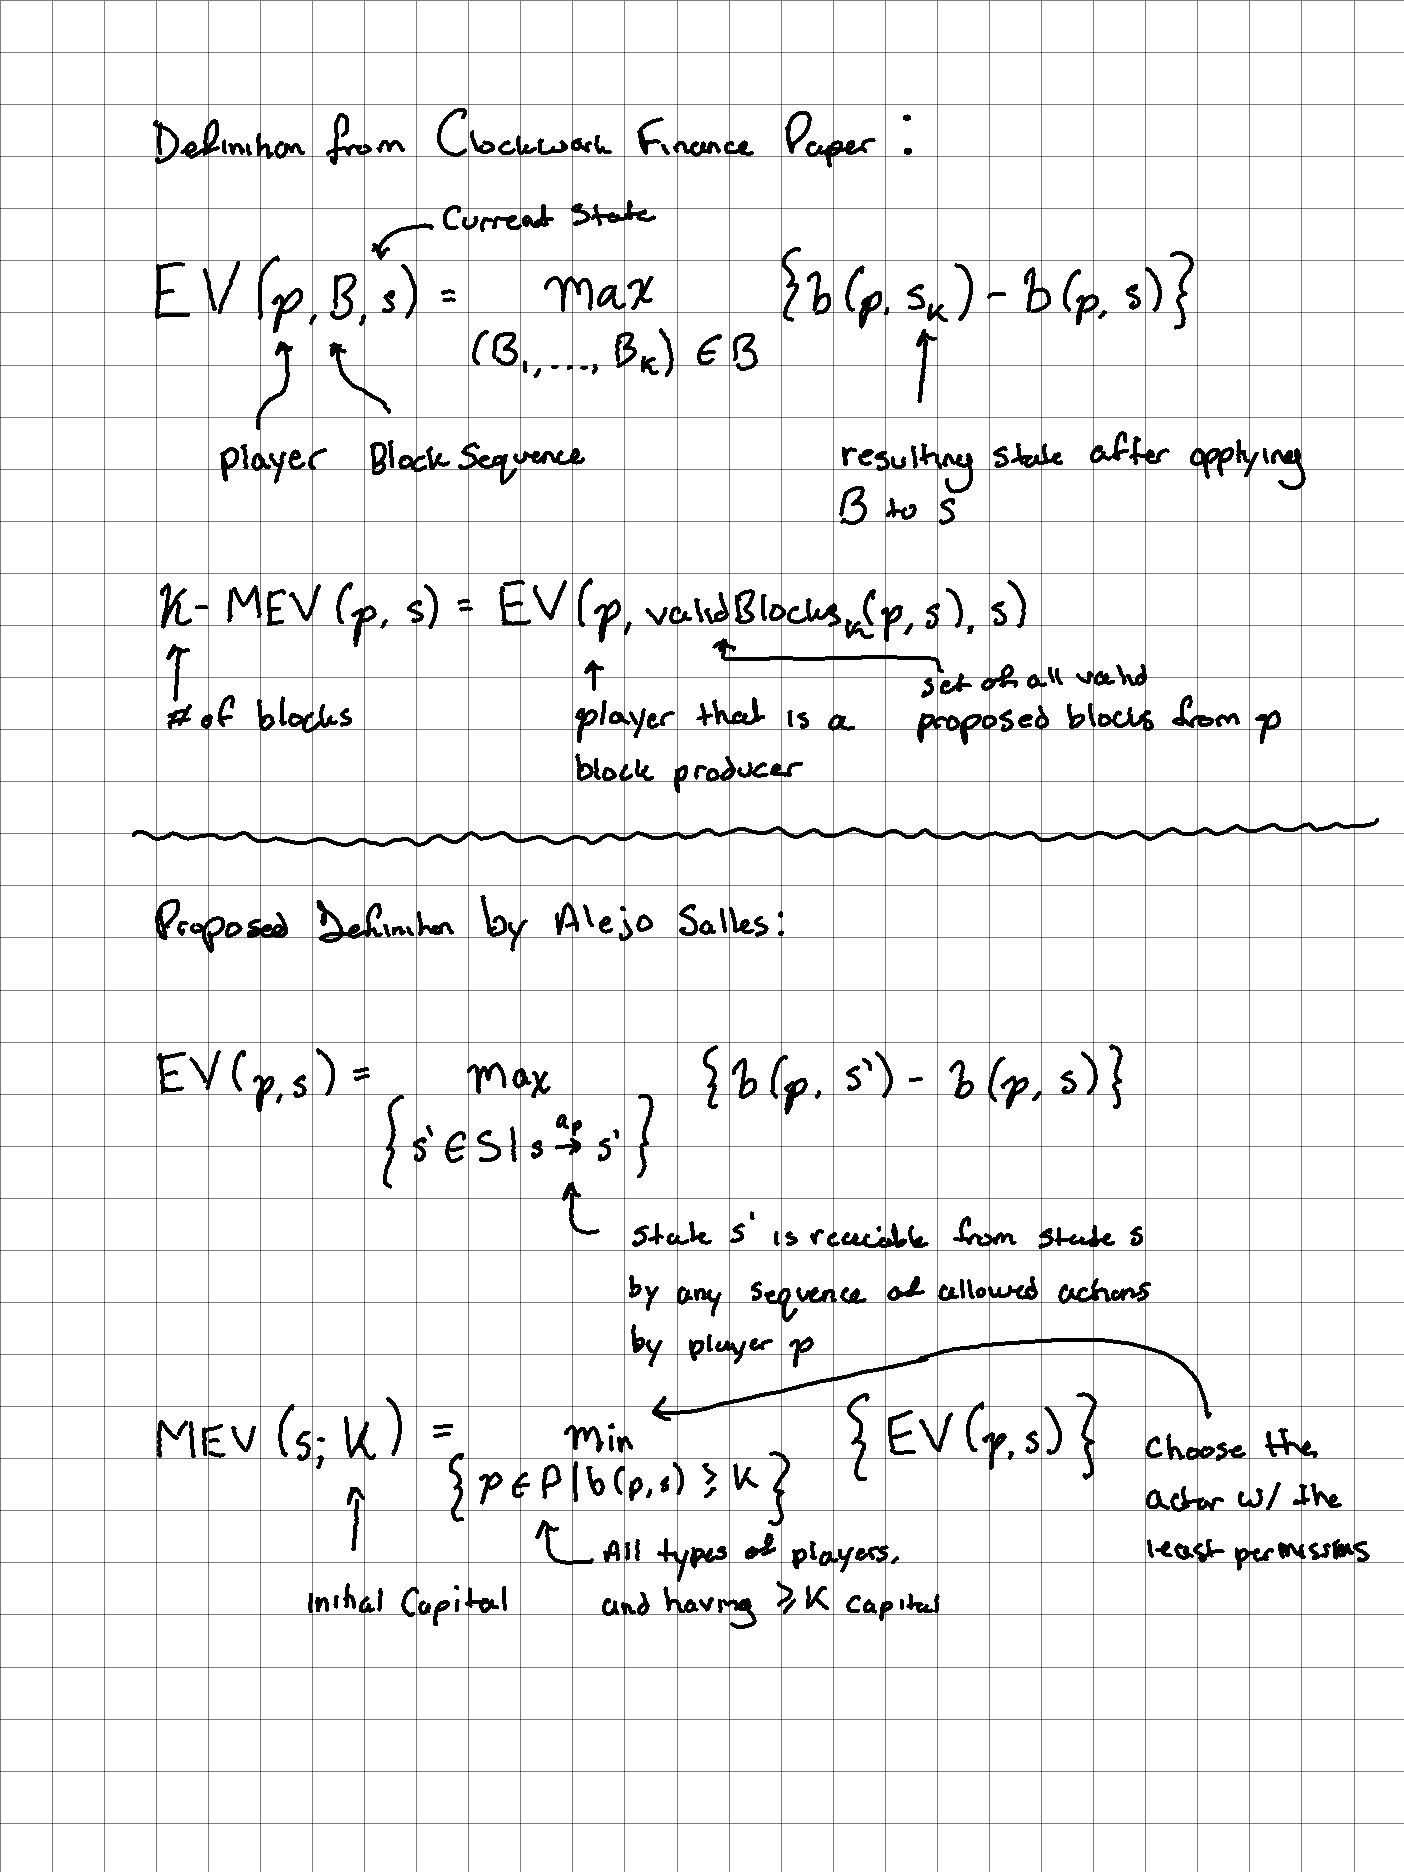 Definition from Clockwork Finance Paper:
Current State
EV(p, B, s) = max {b(p, s_k) - b(p, s)}
(B_1, ..., B_k) ∈ B
player Block Sequence resulting state after applying
B to s
K-MEV(p, s) = EV(p, validBlocks_k(p, s), s)
set of all valid
# of blocks player that is a proposed blocks from p
block producer
Proposed Definition by Alejo Salles:
EV(p,s) = max {b(p, s') - b(p, s)}
{s' ∈ S | s →^{a_p} s'}
State s' is reacable from state s
by any sequence of allowed actions
by player p
MEV(s; K) = min {EV(p,s)} Choose the
{p ∈ P | b(p,s) ≥ K} actor w/ the
All types of players, least permissions
Initial Capital and having ≥ K capital